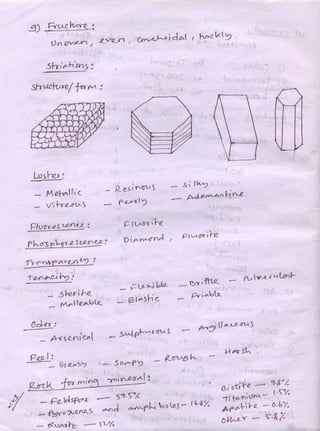 9) Fructure :
Uneven, even, Conchoidal, hackly.
Striations :
Structure/form :
Luster :
- Metallic - Resinous - Silky
- Vitreous - Pearly - Adamantine
Fluorescence : Fluorite
Phosphorescence : Diamond, Fluorite
Transparency :
Tenacity :
- Sterile - Flexible - Brittle - Pulverulent
- Malleable - Elastic - Friable
Odor :
- Arsenical - Sulphurous - Argillaceous
Feel :
- Greasy - Soapy - Rough - Harsh
Rock forming mineral :
- Feldspar - 59.5% Biotite - 3.8%
- Pyroxenes and amphiboles - 16.8% Titanium - 1.5%
- Quartz - 12% Apatite - 0.6%
other - 5.8%